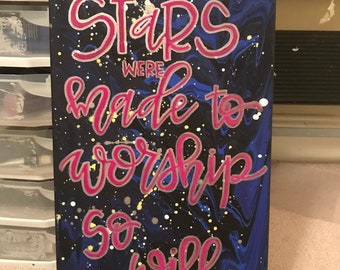 STARS
WERE
made to
worship
so
will